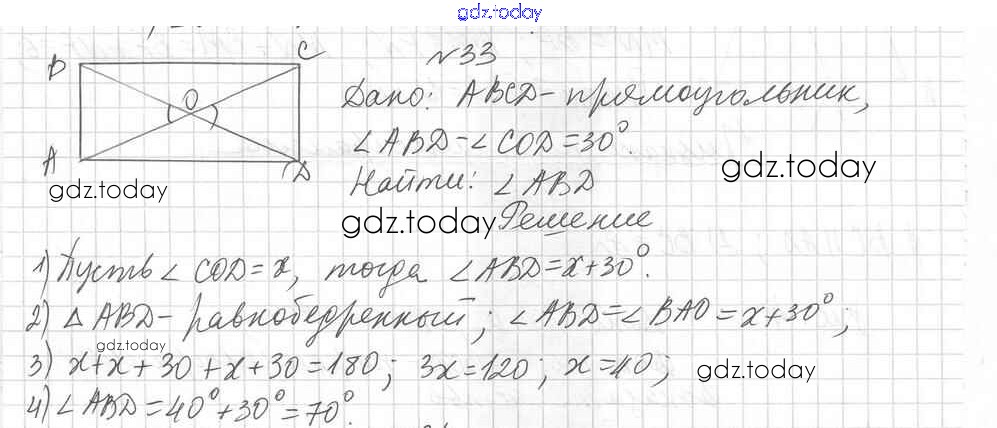 gdz.today
N 33
B C
O
A D
Дано: ABCD - прямоугольник,
∠ABD - ∠COD = 30°.
Найти: ∠ABD
gdz.today
gdz.today
gdz.today
Решение
1) Пусть ∠COD = x, тогда ∠ABD = x + 30°.
2) △ABD - равнобедренный; ∠ABD = ∠BAO = x + 30°;
gdz.today
3) x + x + 30 + x + 30 = 180; 3x = 120; x = 40;
gdz.today
4) ∠ABD = 40° + 30° = 70°.